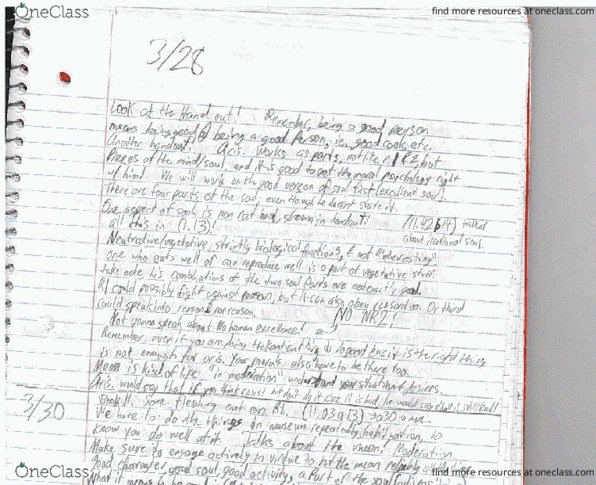 OneClass
find more resources at oneclass.com
3/28
Look at the Hand out! Remember, being a good person
means being good @ being a good Person, i.e. good cook, etc.
Another handout! Aris. works as parts, not like but
Pieces of the mind/soul, and it is good to get the moral psychology right
w/ him. We will work on the good version of soul first (excellent soul).
There are four parts of the soul, even though he doesn't state it.
One aspect of soul is non rational, shown in handout! talked
all this in (1.13)! about irrational soul.
Neutrative/vegetative, strictly biological functions, & not "interesting"
one who eats well or can reproduce well is a part of vegetative stuff
take note, his combinations of the two soul parts are
could possibly fight against reason, but it can also obey reason too. Or third
could speak into reason & nonreason. NO NR2!
Not gonna speak about No human excellence!
Remember, even if you are doing the kant ant thing to do good b/c it is the right thing
is not enough for aris. Your morals also have to be there too.
Mean is kind of like "in moderation" understand your situation & desires.
Aris. would say that if you think
3/30
Book II. Some fleshing out on
We have to do the things repeatedly, habituation, to
know you do well at it. Talks about the mean! Moderation.
Make sure to engage actively in virtue to hit the mean reliably
good character, good soul, good activity, a Part of the soul
What it means to be
OneClass
find more resources at oneclass.com